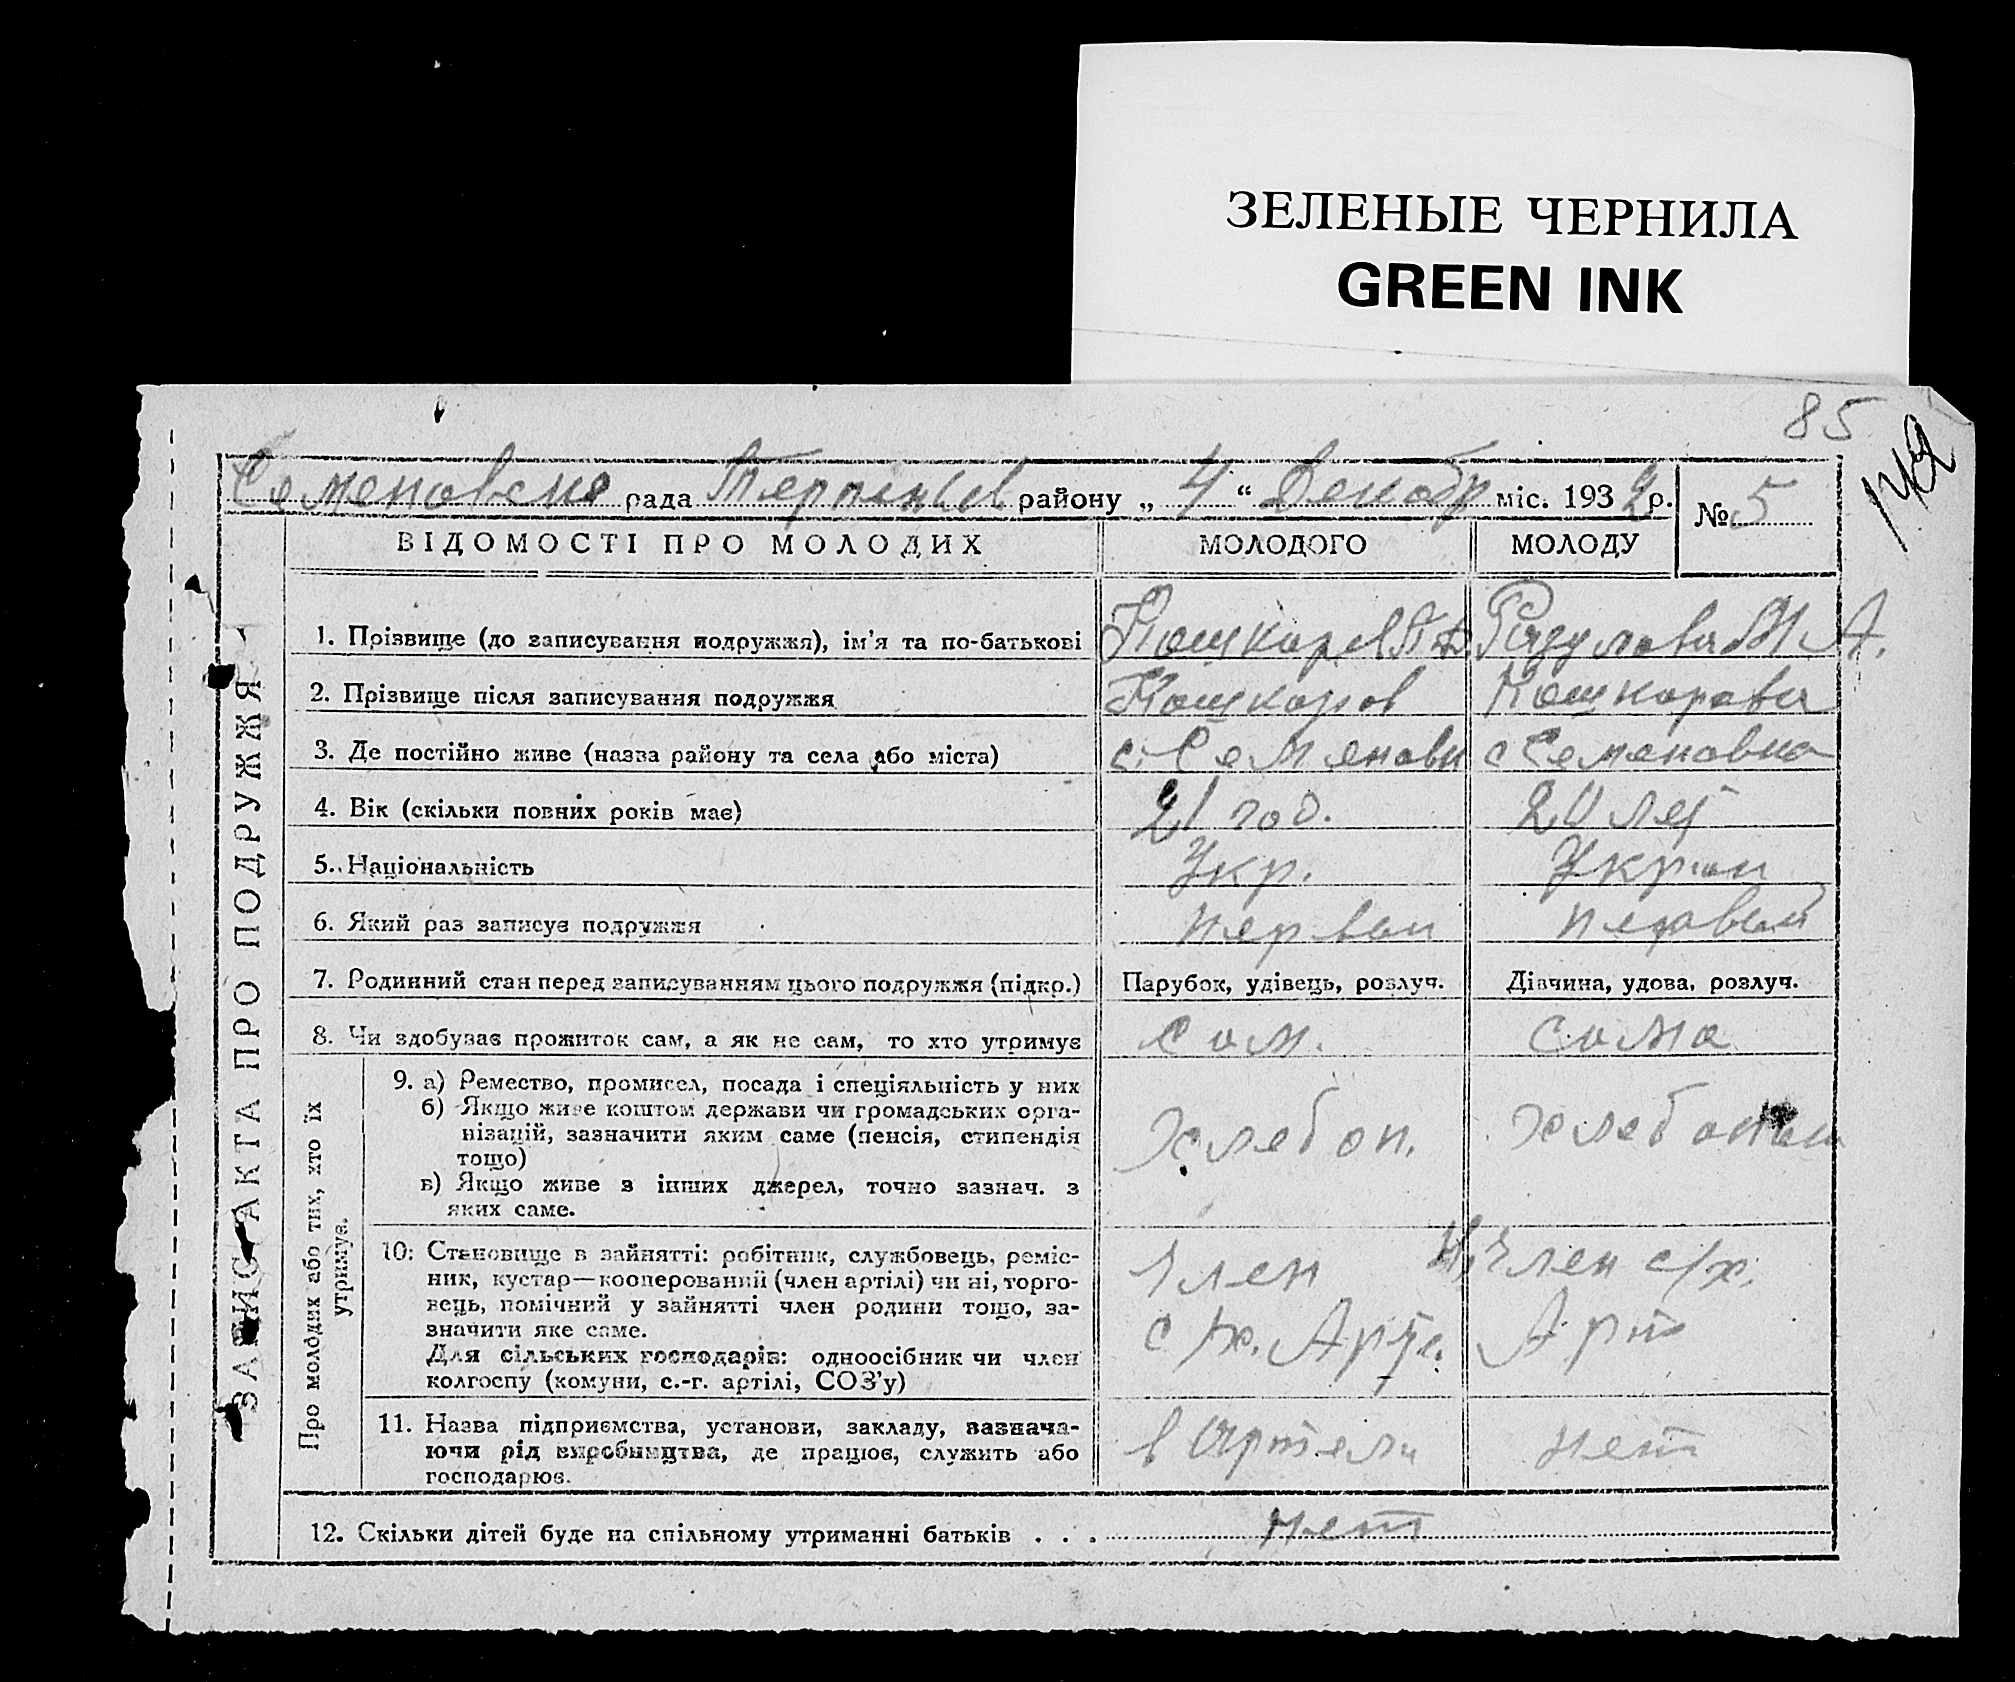 ЗЕЛЕНЫЕ ЧЕРНИЛА
GREEN INK
85
рада району „ 4 “ Декабр міс. 1932 р. № 5
ВІДОМОСТІ ПРО МОЛОДИХ МОЛОДОГО МОЛОДУ
ЗАПИС АКТА ПРО ПОДРУЖЖЯ
1. Прізвище (до записування подружжя), ім’я та по-батькові
2. Прізвище після записування подружжя
3. Де постійно живе (назва району та села або міста) с. с Семеновка
4. Вік (скільки повних років має) 21 год. 20 лет
5. Національність Укр. Украи
6. Який раз записує подружжя первый первый
7. Родинний стан перед записуванням цього подружжя (підкр.) Парубок, удівець, розлуч. Дівчина, удова, розлуч.
8. Чи здобуває прожиток сам, а як не сам, то хто утримує сам. сама
Про молодих або тих, хто їх
утримує.
9. а) Ремество, промисел, посада і спеціяльність у них
б) Якщо живе коштом держави чи громадських орга-
нізацій, зазначити яким саме (пенсія, стипендія
тощо)
в) Якщо живе з інших джерел, точно зазнач. з
яких саме.
хлебоп.
10. Становище в зайнятті: робітник, службовець, реміс-
ник, кустар—кооперований (член артілі) чи ні, торго-
вець, помічний у зайнятті член родини тощо, за-
значити яке саме.
Для сільських господарів: одноосібник чи член
колгоспу (комуни, с.-г. артілі, СОЗ’у)
Член
с/х. Арт.
Член с/х.
Арт
11. Назва підприємства, установи, закладу, зазнача-
ючи рід виробництва, де працює, служить або
господарює.
в Артели
нет
12. Скільки дітей буде на спільному утриманні батьків . . . нет